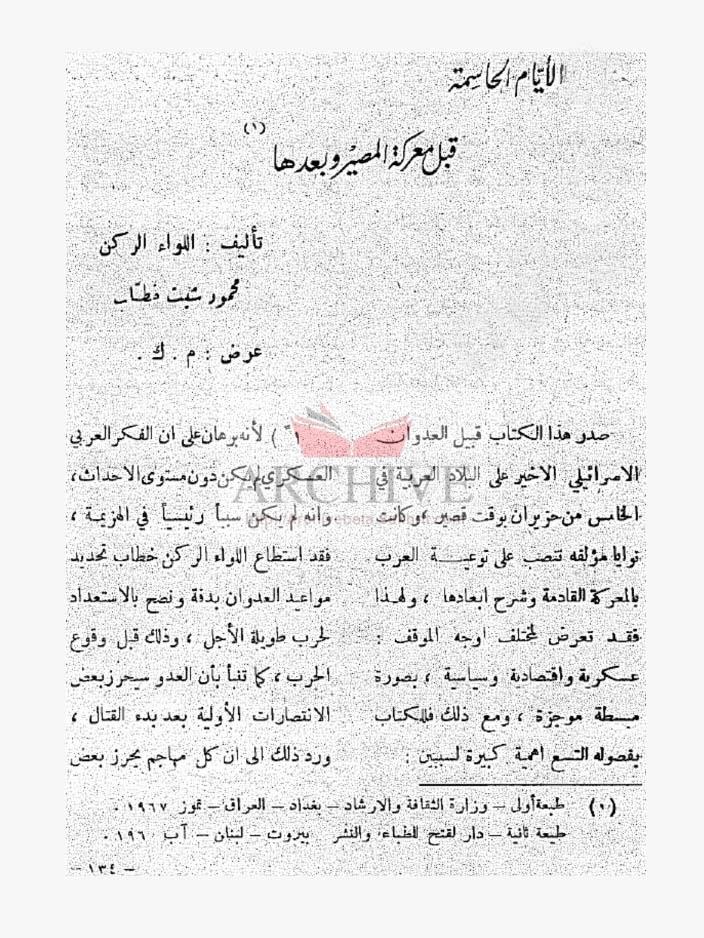 الأيّام الحاسِمة
قبل معركة المصير وبعدها (١)
تأليف : اللواء الركن
محمود شيت خطّاب
عرض : م . ك .
صدر هذا الكتاب قبيل العدوان
الاسرائيلي الاخير على البلاد العربية في
الخامس من حزيران بوقت قصير ، وكانت
نوايا مؤلفه تنصب على توعيــة العرب
بالمعركة القادمة وشرح ابعادها ، ولهــذا
فقــد تعرض لمختلف اوجه الموقف :
عسكرية واقتصادية وسياسية ، بصورة
مبسطة موجزة ، ومع ذلك فللكتاب
بفصوله التسع اهمية كبيرة لسببين :
١ ) لأنه برهان على ان الفكر العربي
العسكري لم يكن دون مستوى الاحداث،
وانه لم يكن سبباً رئيسياً في الهزيمة ،
فقد استطاع اللواء الركن خطاب تحديد
مواعيد العدوان بدقة ونصح بالاستعداد
لحرب طويلة الأجل ، وذلك قبل وقوع
الحرب ، كما تنبأ بأن العدو سيحرز بعض
الانتصارات الأولية بعد بدء القتال ،
ورد ذلك الى ان كل مهاجم يحرز بعض
(١) طبعة أولى – وزارة الثقافة والارشاد – بغداد – العراق – تموز ١٩٦٧ .
طبعة ثانية – دار الفتح للطباعة والنشر بيروت – لبنان – آب ١٩٦ .
– ١٣٤ –
ARCHIVE